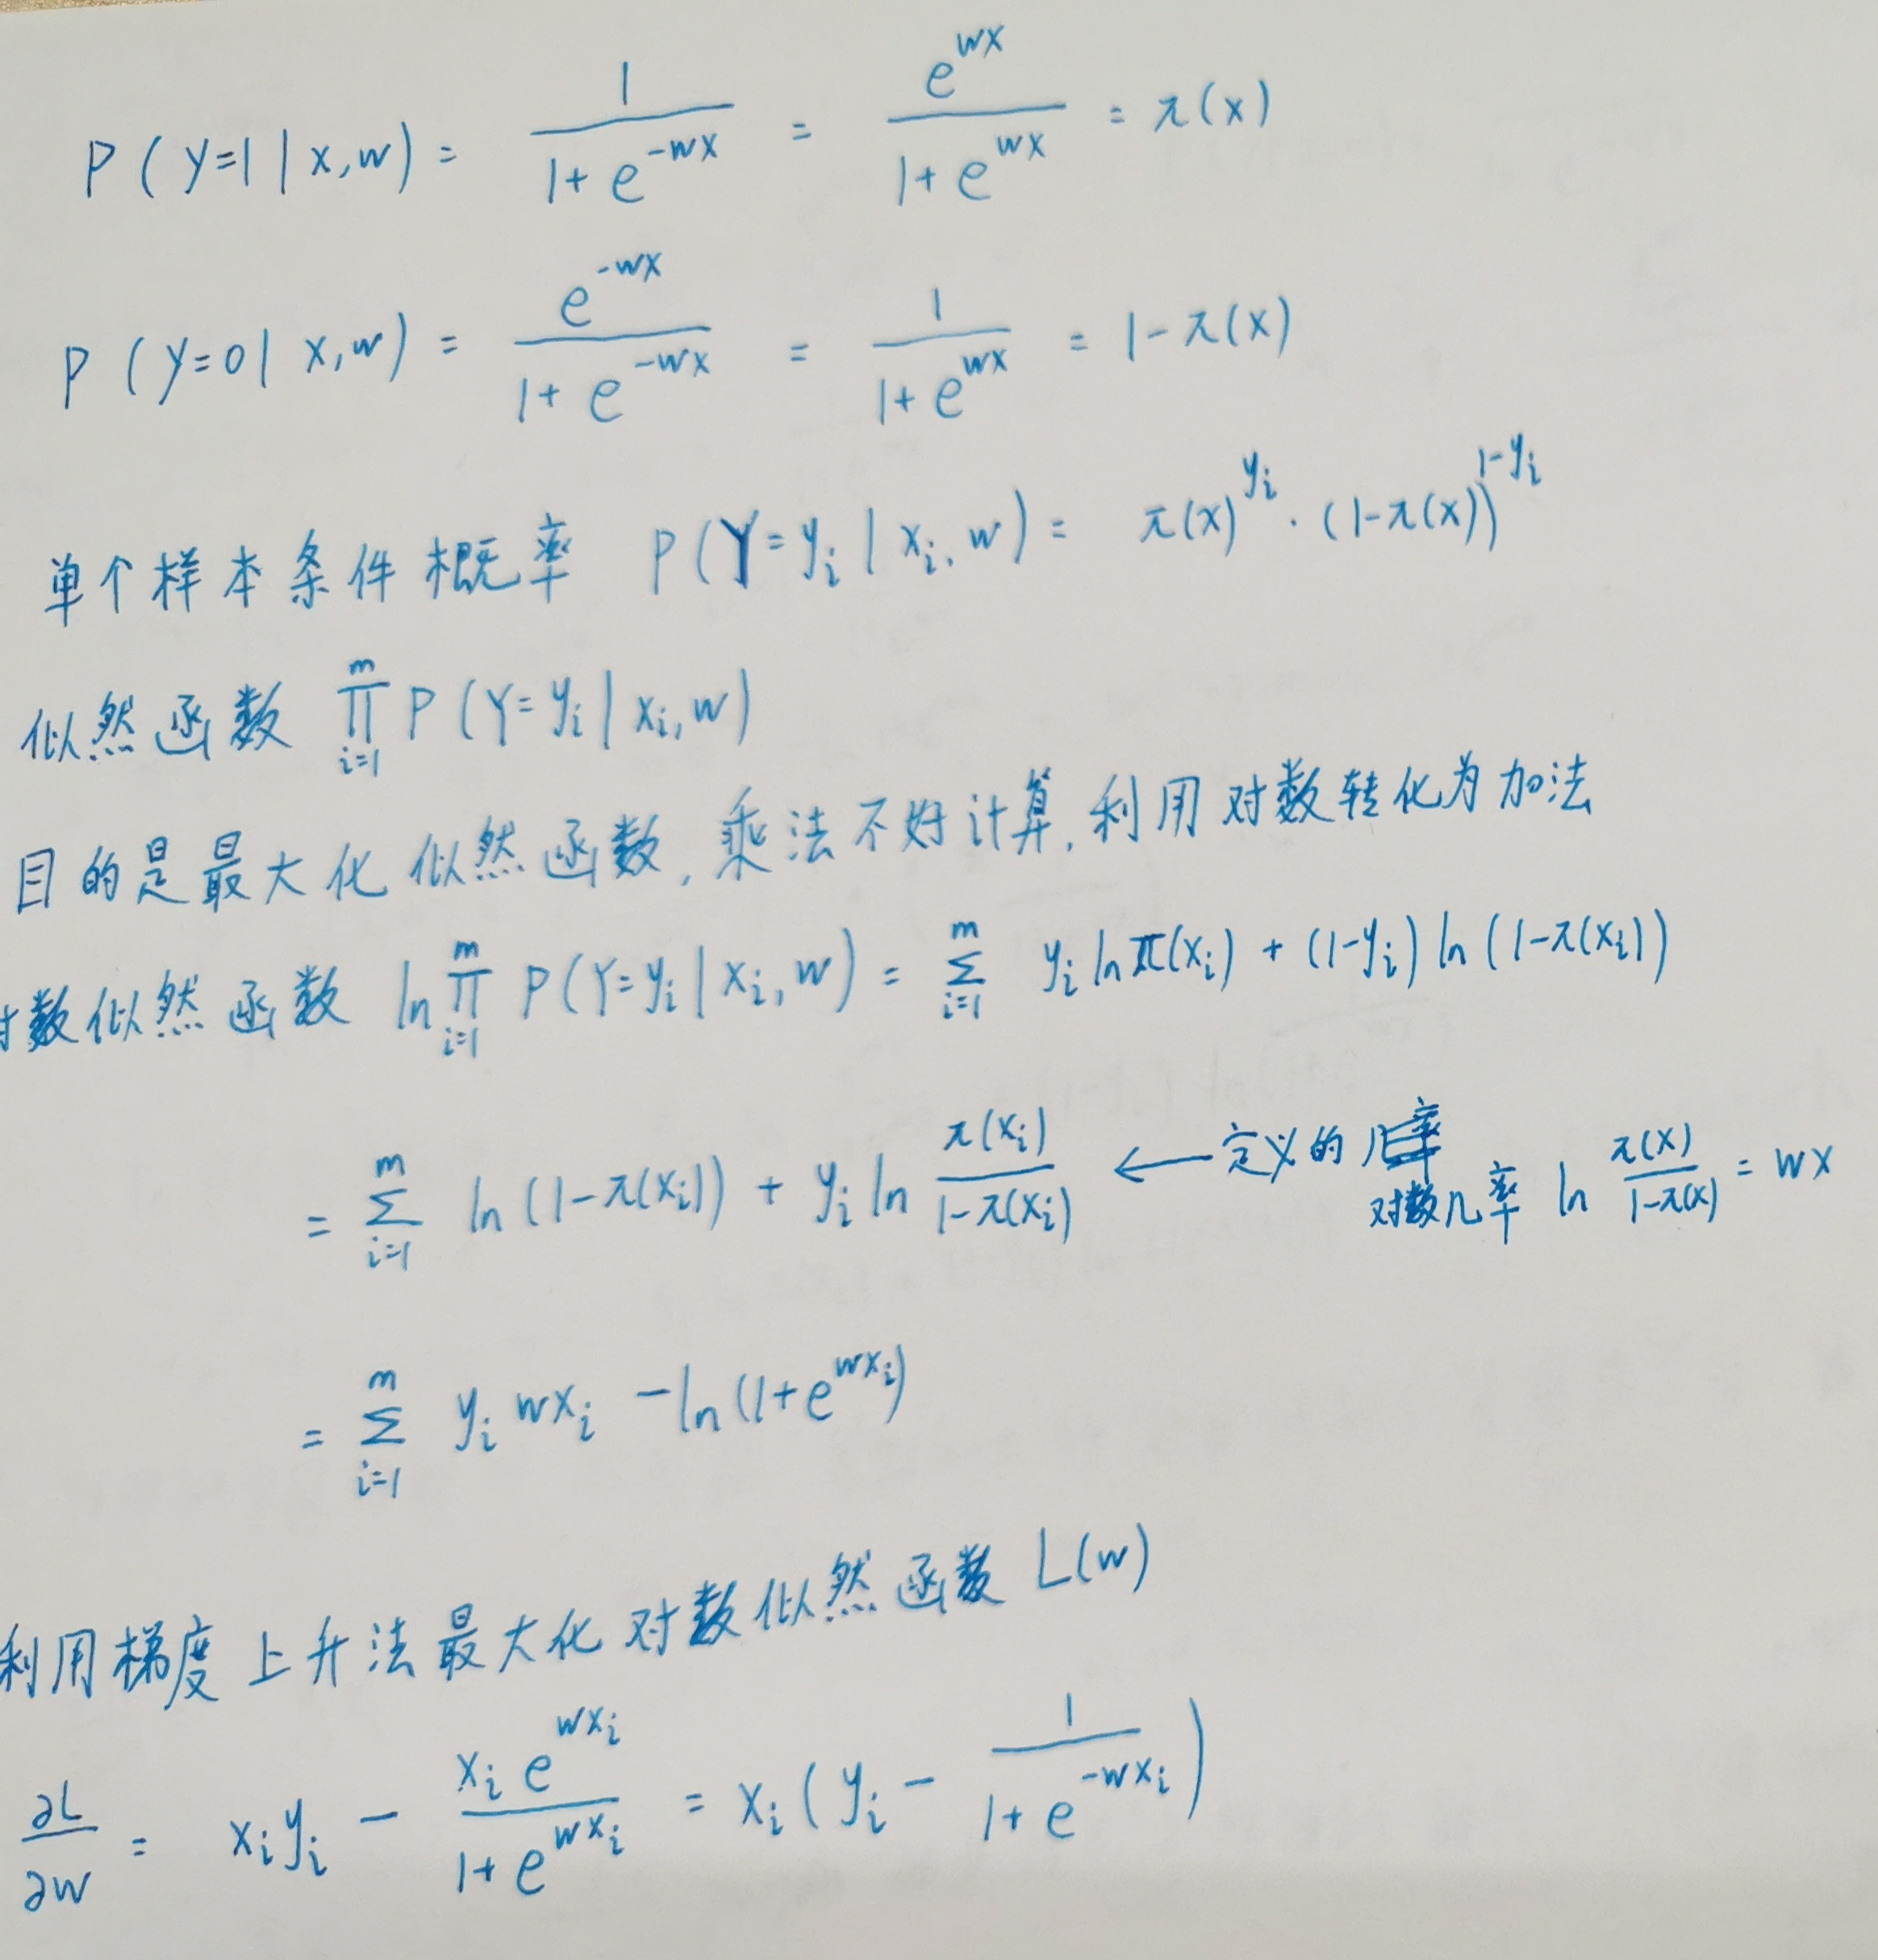 P(y=1|x,w) = \frac{1}{1+e^{-wx}} = \frac{e^{wx}}{1+e^{wx}} = π(x)
P(y=0|x,w) = \frac{e^{-wx}}{1+e^{-wx}} = \frac{1}{1+e^{wx}} = 1-π(x)
单个样本条件概率 P(Y=y_i|x_i,w) = π(x)^{y_i}·(1-π(x))^{1-y_i}
似然函数 \prod_{i=1}^{m} P(Y=y_i|x_i,w)
目的是最大化似然函数,乘法不好计算,利用对数转化为加法
对数似然函数 ln\prod_{i=1}^{m} P(Y=y_i|x_i,w) = \sum_{i=1}^{m} y_i ln π(x_i) + (1-y_i) ln(1-π(x_i))
= \sum_{i=1}^{m} ln(1-π(x_i)) + y_i ln \frac{π(x_i)}{1-π(x_i)} ← 定义的
对数几率 ln \frac{π(x)}{1-π(x)} = wx
= \sum_{i=1}^{m} y_i wx_i - ln(1+e^{wx_i})
利用梯度上升法最大化对数似然函数 L(w)
\frac{∂L}{∂w} = x_i y_i - \frac{x_i e^{wx_i}}{1+e^{wx_i}} = x_i(y_i - \frac{1}{1+e^{-wx_i}})